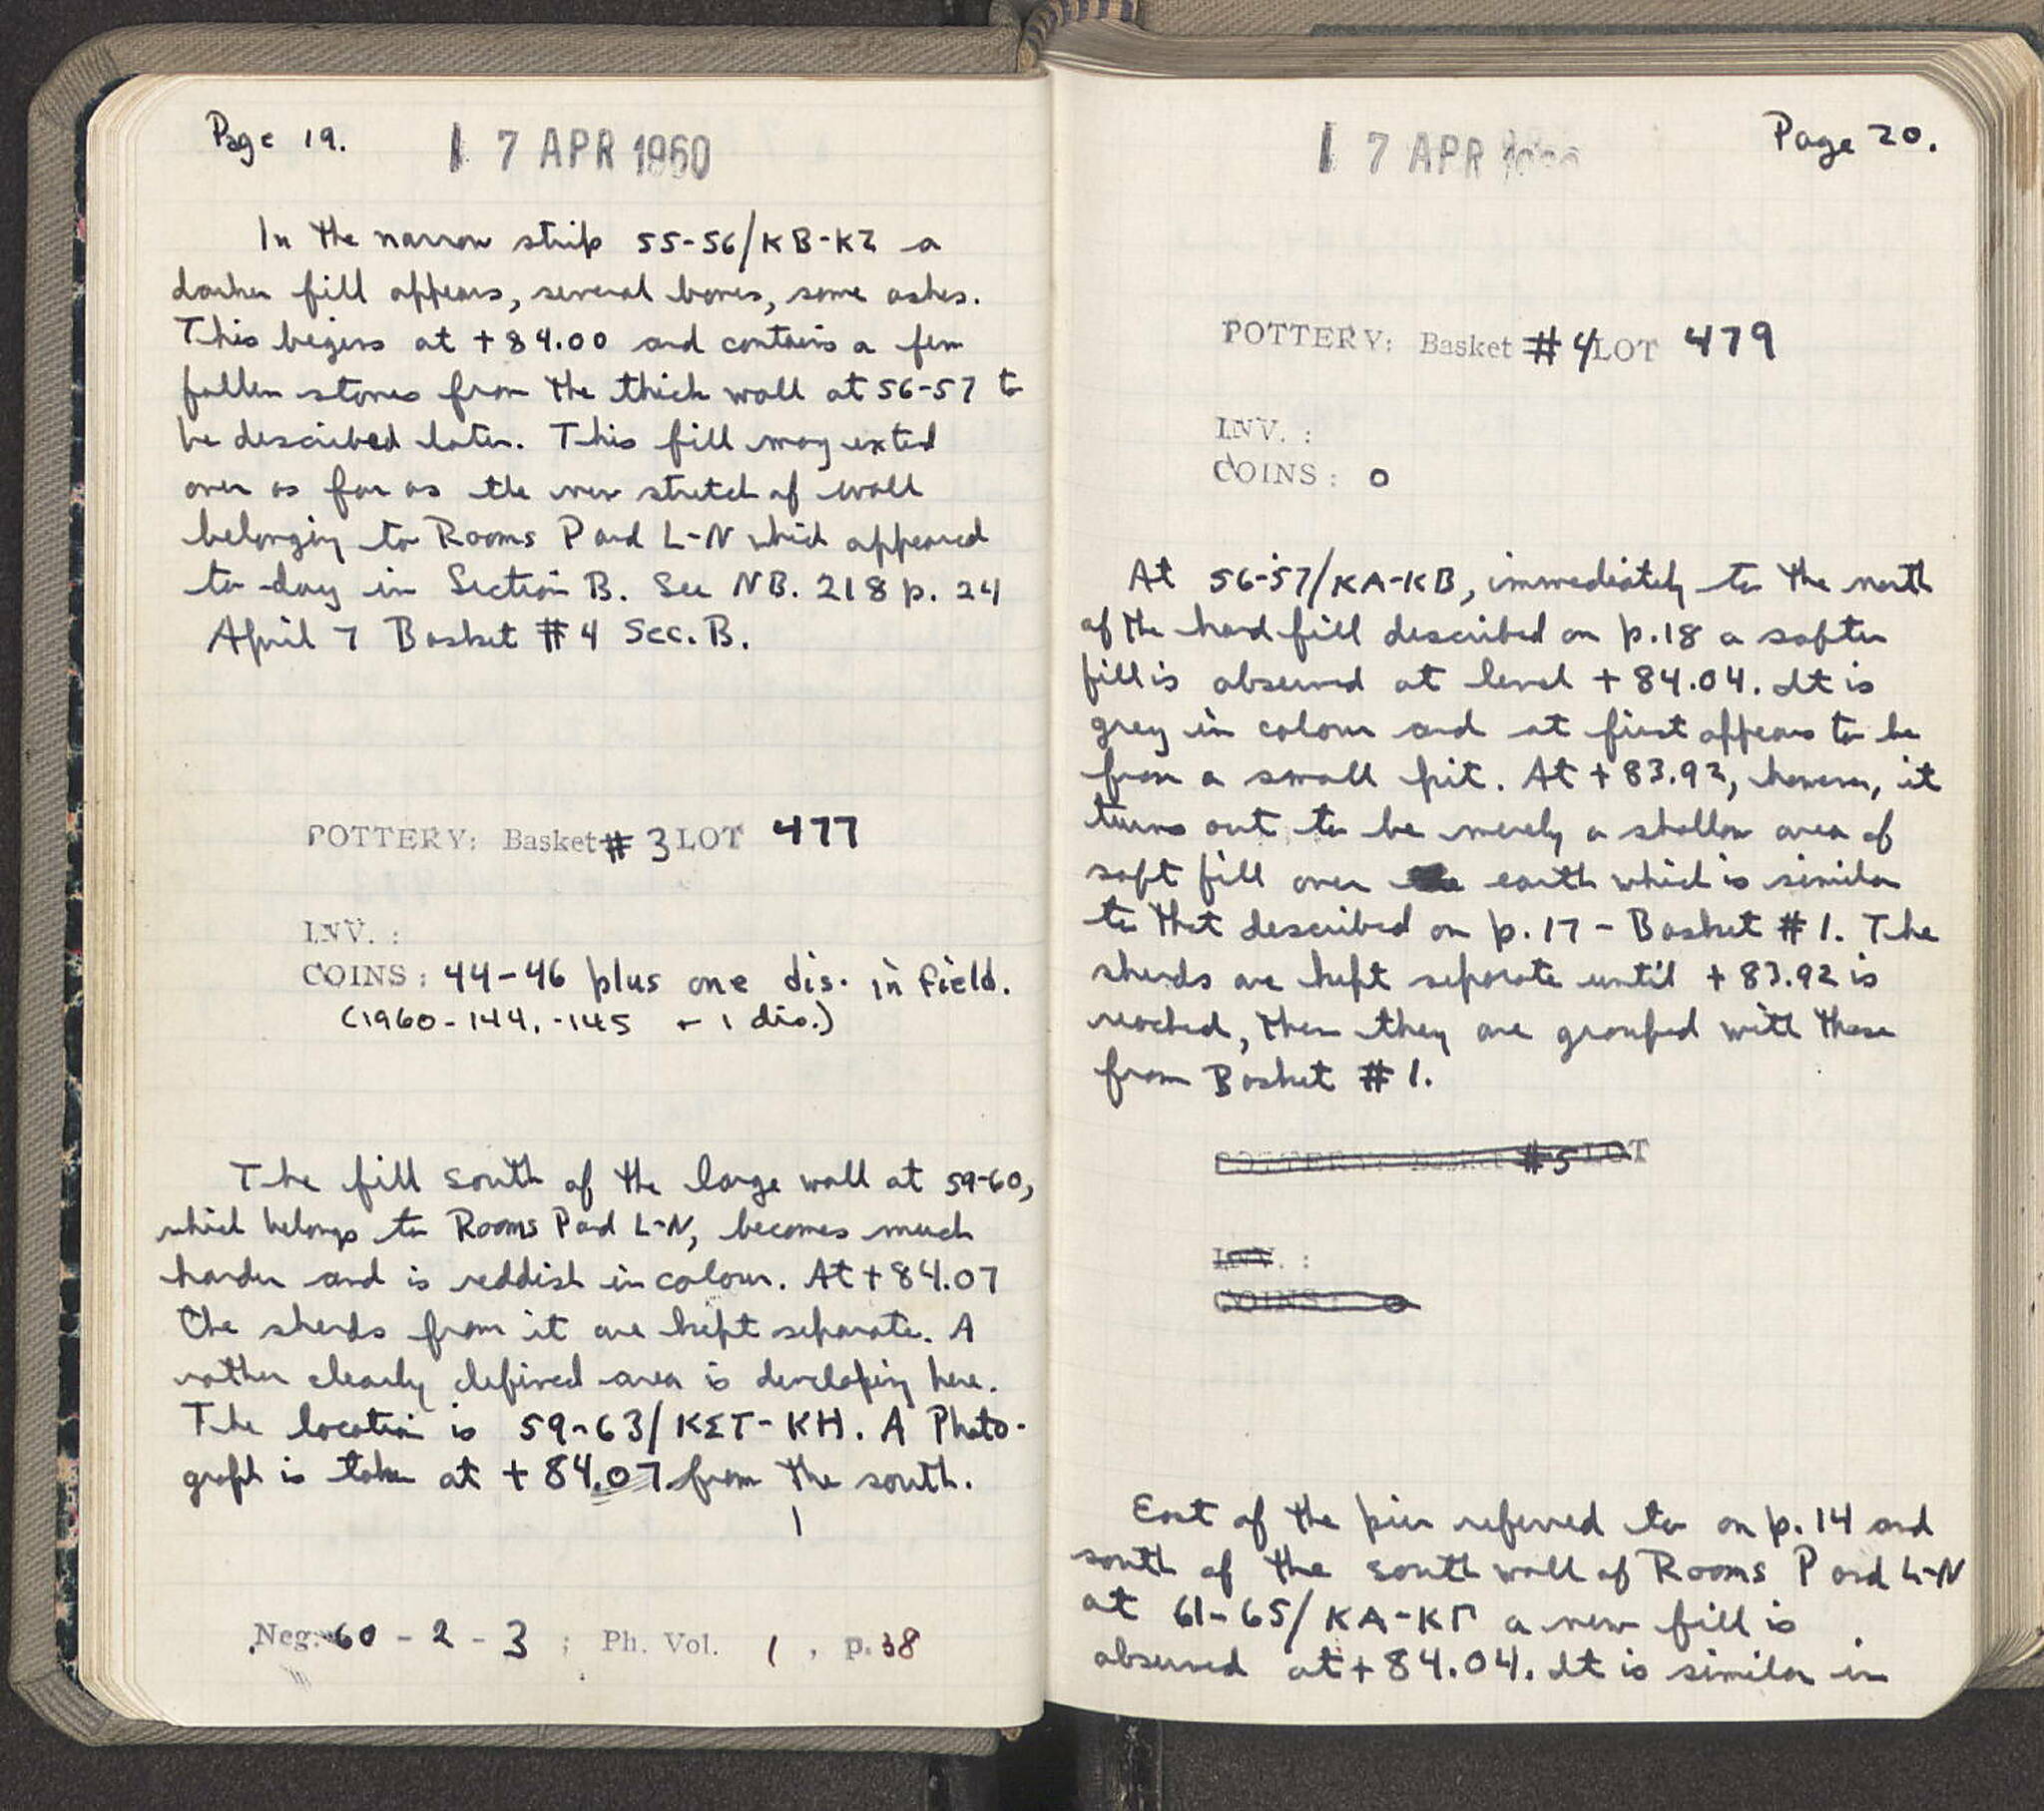 Page 19.
17 APR 1960
In the narrow strip 55-56/KB-KZ a
darker fill appears, several bones, some ashes.
This begins at +84.00 and contains a few
fallen stones from the thick wall at 56-57 to
be described later. This fill may extend
over as far as the new stretch of wall
belonging to Rooms P and L-N which appeared
to-day in Section B. See NB. 218 p. 24
April 7 Basket #4 Sec. B.
POTTERY: Basket #3 LOT 477
INV. :
COINS: 44-46 plus one dis. in field.
(1960-144, -145 + 1 dis.)
The fill south of the large wall at 59-60,
which belongs to Rooms P and L-N, becomes much
harder and is reddish in colour. At +84.07
the sherds from it are kept separate. A
rather clearly defined area is developing here.
The location is 59-63/KΣT-KH. A Photo-
graph is taken at +84.07 from the south.
Neg. 60-2-3 ; Ph. Vol. 1, p. 38
17 APR
Page 20.
POTTERY: Basket #4 LOT 479
INV. :
COINS: 0
At 56-57/KA-KB, immediately to the north
of the hard fill described on p.18 a softer
fill is observed at level +84.04. It is
grey in colour and at first appears to be
from a small pit. At +83.92, however, it
turns out to be merely a shallow area of
soft fill over earth which is similar
to that described on p.17 - Basket #1. The
sherds are kept separate until +83.92 is
reached, then they are grouped with those
from Basket #1.
POTTERY: Basket #5 LOT
INV. :
COINS: 0
East of the pier referred to on p.14 and
south of the south wall of Rooms P and L-N
at 61-65/KA-KΓ a new fill is
observed at +84.04. It is similar in